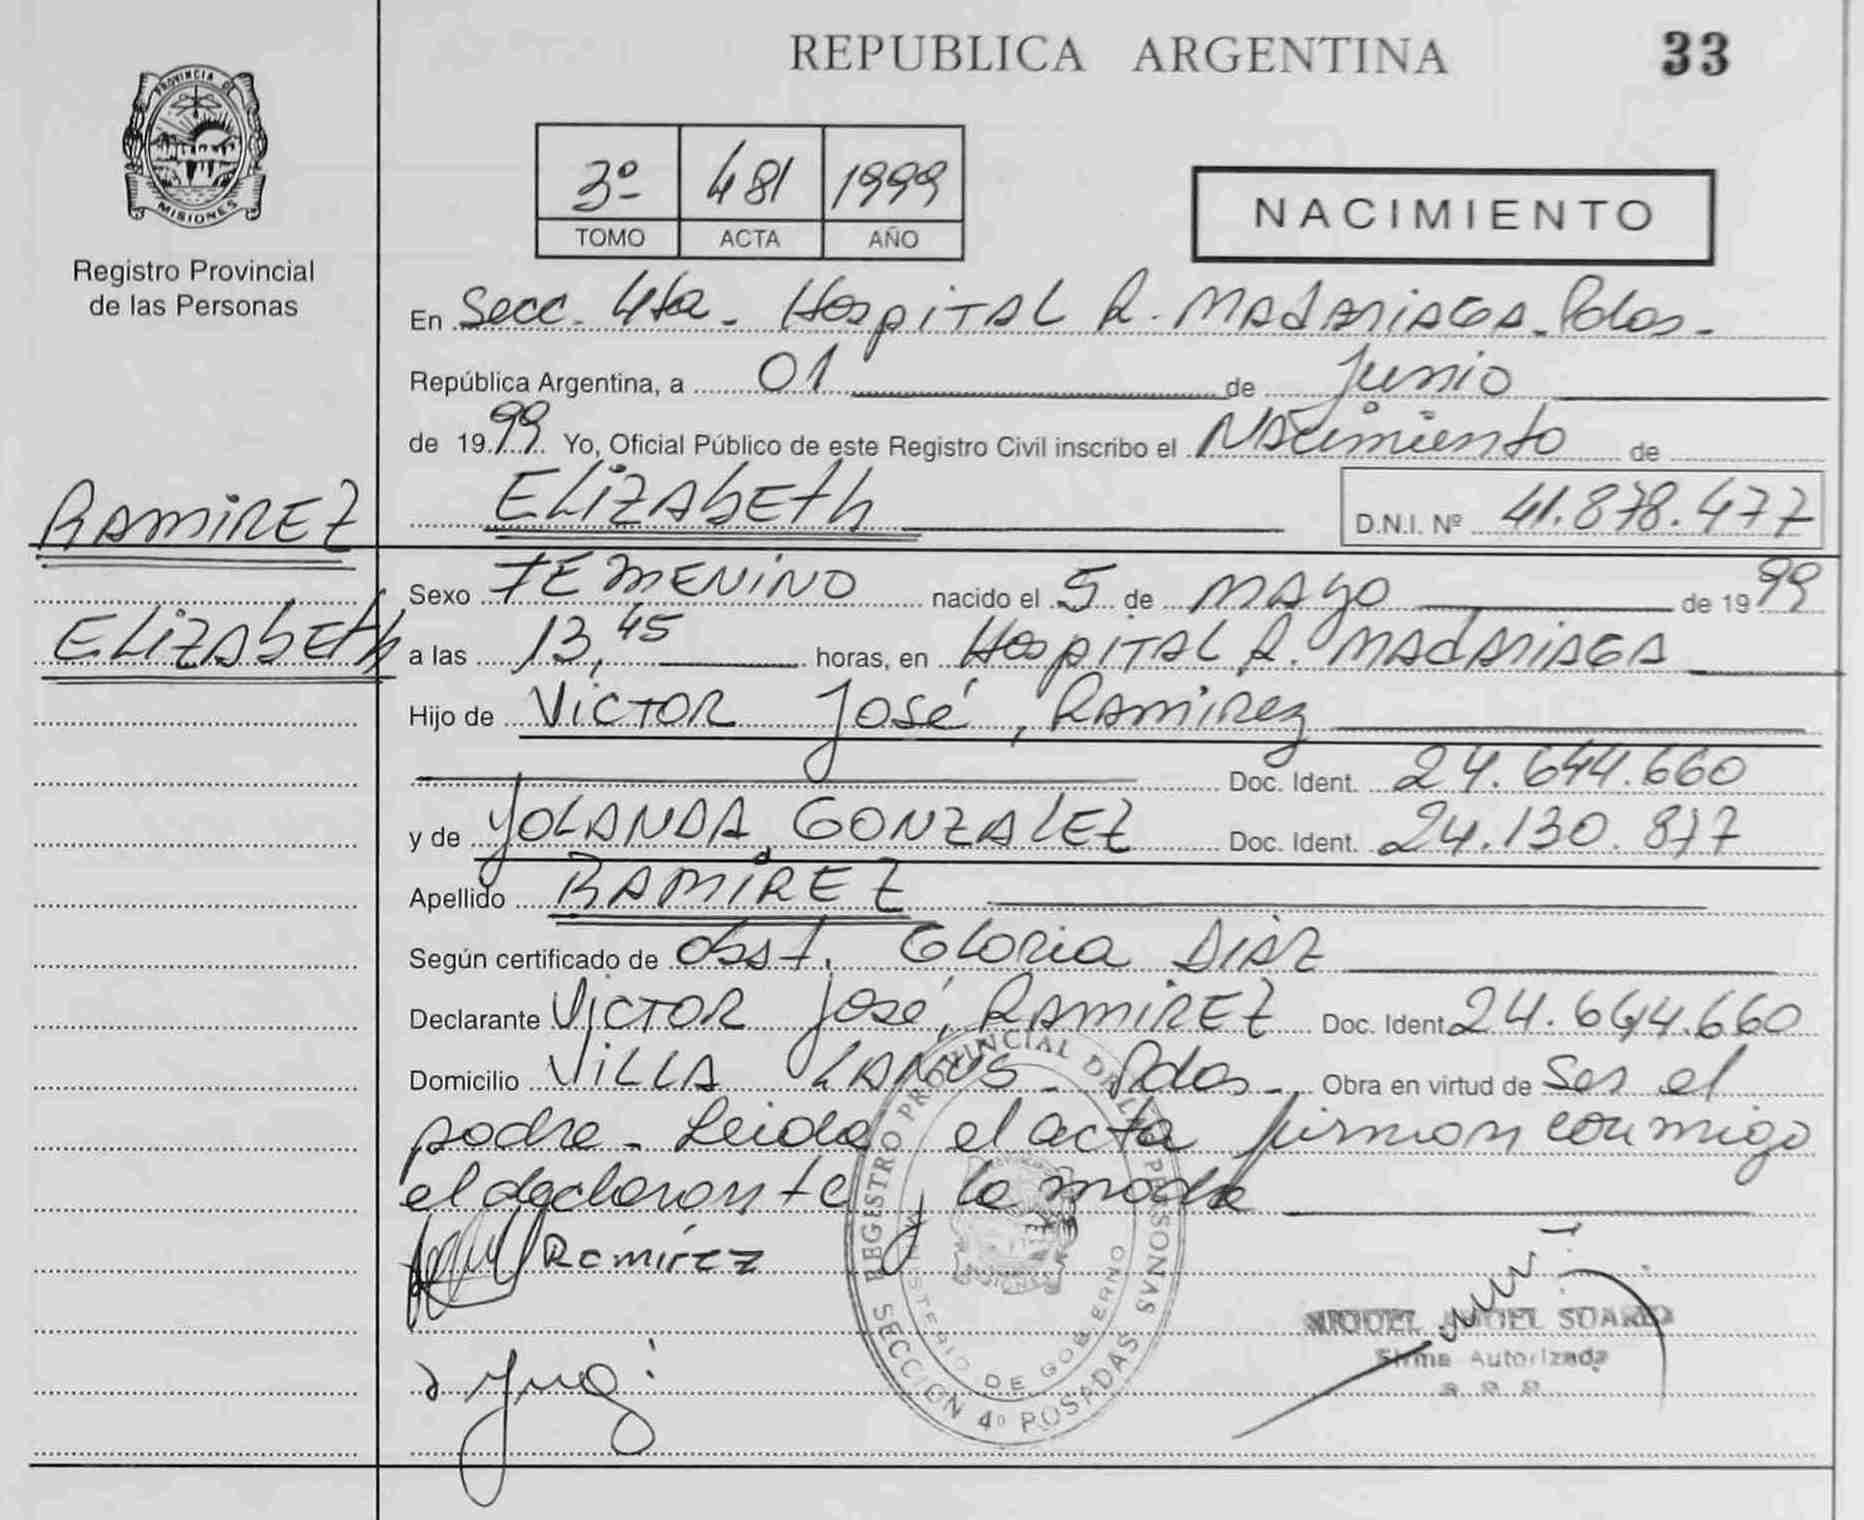 REPUBLICA ARGENTINA
33
PROVINCIA DE
MISIONES
Registro Provincial
de las Personas
3º 481 1999
TOMO ACTA AÑO
NACIMIENTO
En Secc. 4ta - Hospital R. Madariaga - Pdas. -
República Argentina, a 01 de Junio
de 1999 Yo, Oficial Público de este Registro Civil inscribo el Nacimiento de
RAMIREZ
ELIZABETH
ELIZAbETh
D.N.I. Nº 41.878.477
Sexo FEMENINO nacido el 5 de MAYO de 1999
a las 13,45 horas, en Hospital R. MADARIAGA
Hijo de VICTOR José, Ramirez
Doc. Ident. 24.644.660
y de YOLANDA GONZALEZ Doc. Ident. 24.130.877
Apellido RAMIREZ
Según certificado de Obst. Gloria DIAZ
Declarante VICTOR José, RAMIREZ Doc. Ident. 24.644.660
Domicilio VILLA LANUS - Pdas. - Obra en virtud de ser el
padre - Leida el acta firman conmigo
el declarante y la madre
Ramírez
REGISTRO PROVINCIAL DE LAS PERSONAS
SECCION 4º POSADAS
MINISTERIO DE GOBIERNO
MIGUEL ANGEL SUAREZ
Firma Autorizada